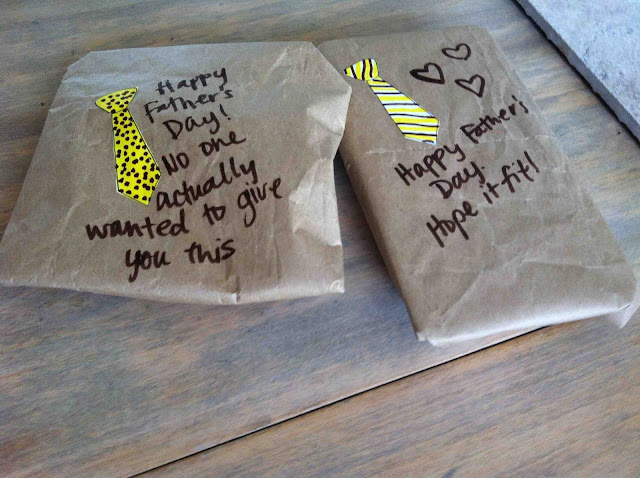 Happy
Father's
Day!
No one
actually
wanted to give
you this
Happy Father's
Day.
Hope it fit!